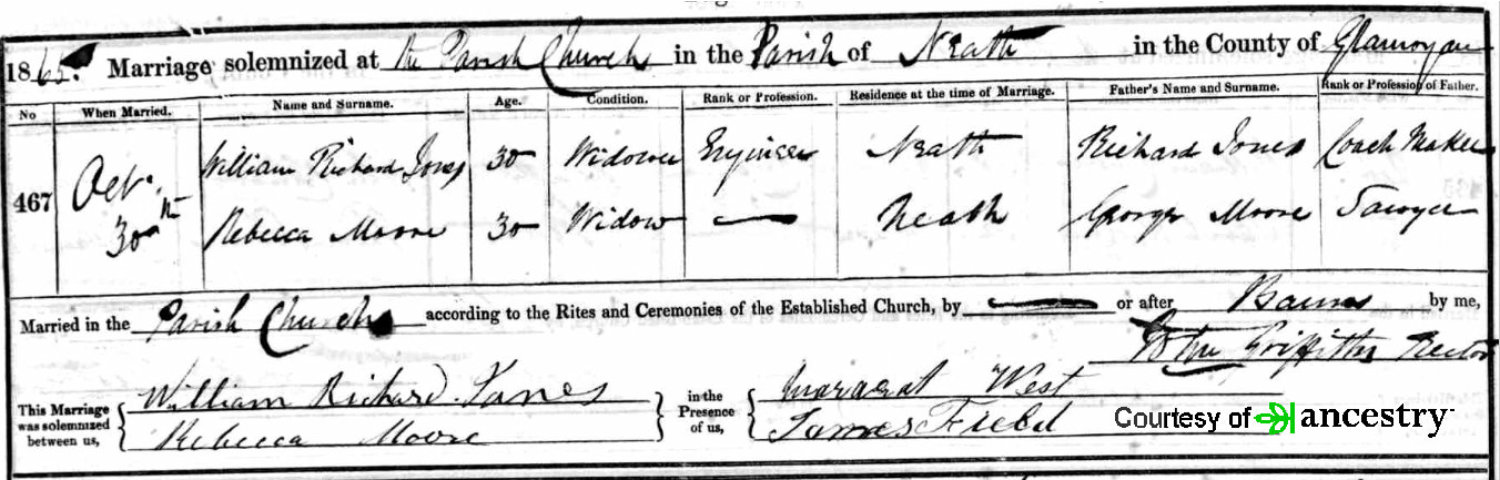 1865. Marriage solemnized at the Parish Church in the Parish of Neath in the County of Glamorgan
No When Married. Name and Surname. Age. Condition. Rank or Profession. Residence at the time of Marriage. Father's Name and Surname. Rank or Profession of Father.
467 Oct. 30th William Richard Jones 30 Widower Engineer Neath Richard Jones Coach Maker
Rebecca Moore 30 Widow — Neath George Moore Sawyer
Married in the Parish Church according to the Rites and Ceremonies of the Established Church, by — or after Banns by me,
John Griffiths Rector
This Marriage was solemnized between us, William Richard Jones
Rebecca Moore
in the Presence of us, Margaret West
James Field
Courtesy of ancestry